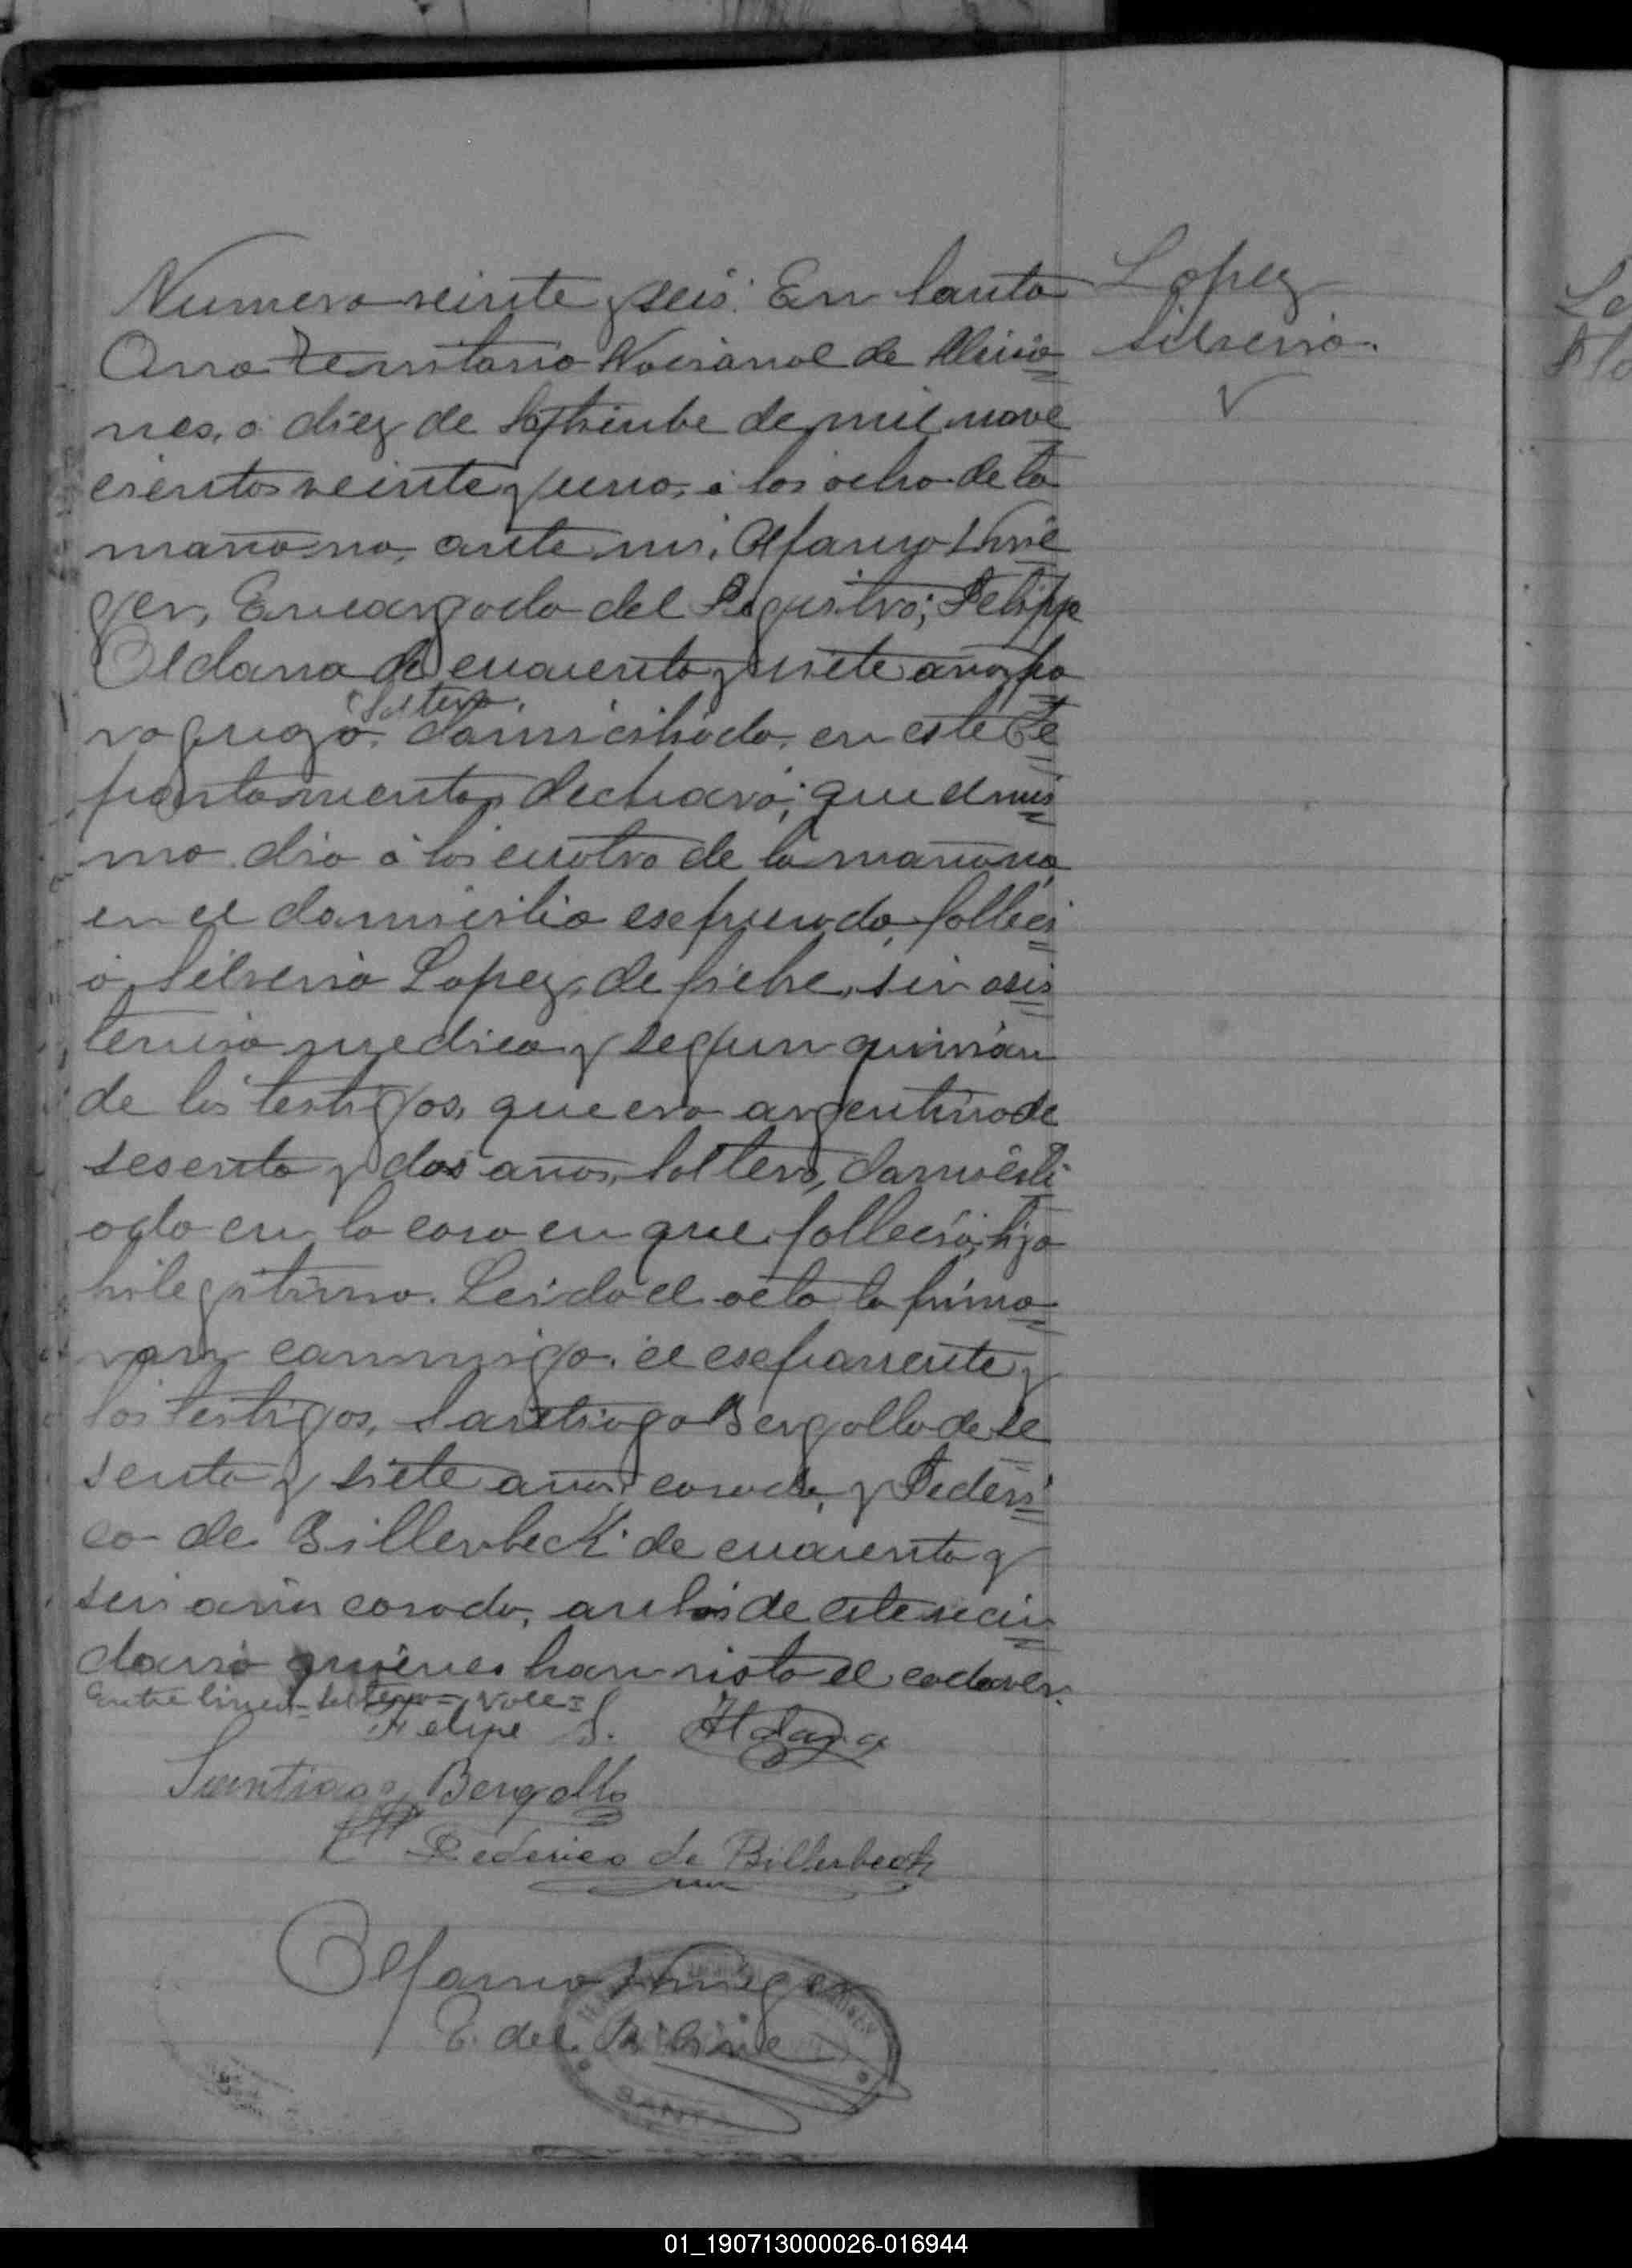 Numero veinte y seis. En Santa
Ana Territorio Nacional de Misio
nes, a diez de Septiembe de mil nove
cientos veinte y uno, á las ocho de la
mañana, ante mi,
ger, Encargado del Registro; Felipe
Aldana de cuarenta y siete años, pa
raguayo, soltero, domiciliado en este De
partamento, declaró; que el mis
mo dia á las cuatro de la mañana
en el domicilio espresado, falleci
ó Silverio Lopez, de fiebre, sin asis
tencia medica y segun
de los testigos, que era argentino de
sesenta y dos años, soltero, domicili
ado en la casa en que falleció, hijo
hilegitimo. Leido el acta la firma
ron conmigo, el esponente y
los testigos, Santiago Bergallo de se
senta y siete años, casado, y Federi
co de Billerbeck de cuarenta y
seis años casado, ambos de este vecin
dario quienes han visto el cadaver.
Entre linea - soltero = Vale =
Felipe S. Aldana
Santiago Bergallo
Federico de Billerbeck
E. del R. Civil
SANTA
Lopez
Silverio.
01_190713000026-016944